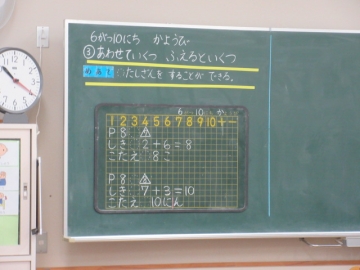 6がつ10にち かようび
③あわせていくつ ふえるといくつ
めあて たしざんを することが できる。
6 10 か
1 2 3 4 5 6 7 8 9 10 + -
P8 ⚠
しき 2+6=8
こたえ 8こ
P8
しき 7+3=10
こたえ 10にん